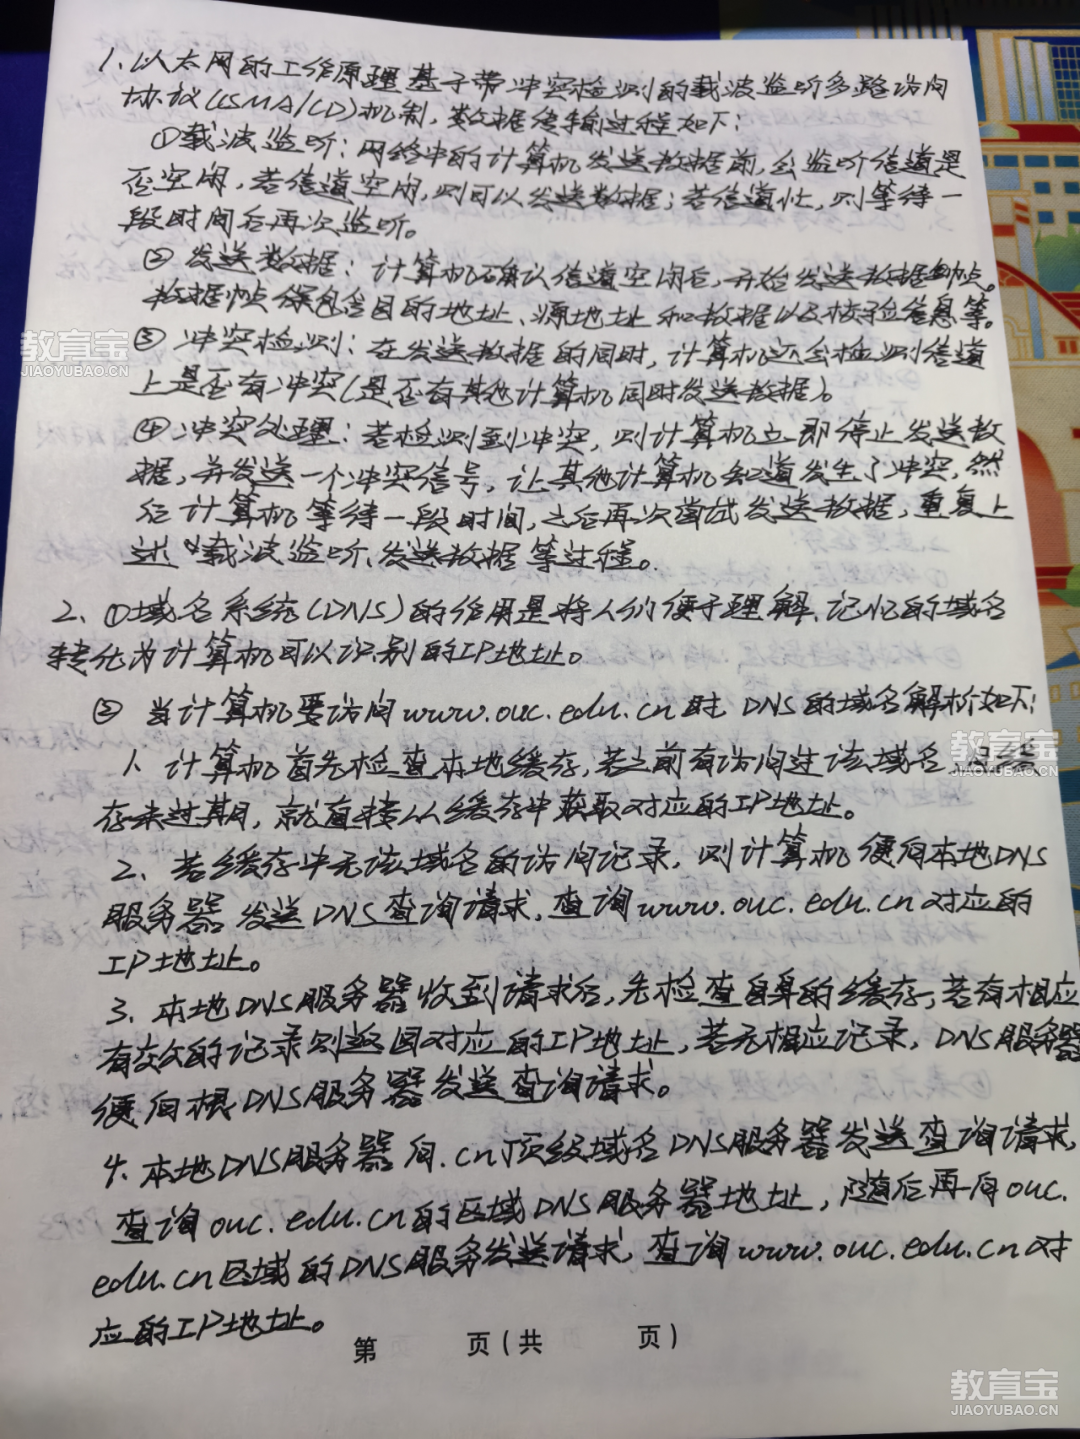 1、以太网的工作原理基于带冲突检测的载波监听多路访问
协议(CSMA/CD)机制,数据传输过程如下:
①载波监听:网络中的计算机发送数据前,会监听信道是
否空闲,若信道空闲,则可以发送数据;若信道忙,则等待一
段时间后再次监听。
② 发送数据:计算机确认信道空闲后,开始发送数据帧。
数据帧包含目的地址、源地址和数据以及校验信息等。
③ 冲突检测:在发送数据的同时,计算机还会检测信道
上是否有冲突(是否有其他计算机同时发送数据)。
④ 冲突处理:若检测到冲突,则计算机立即停止发送数
据,并发送一个冲突信号,让其他计算机知道发生了冲突,然
后计算机等待一段时间,之后再次尝试发送数据,重复上
述载波监听、发送数据等过程。
2、①域名系统(DNS)的作用是将人们便于理解、记忆的域名
转化为计算机可以识别的IP地址。
② 当计算机要访问www.ouc.edu.cn时,DNS的域名解析如下:
1、计算机首先检查本地缓存,若之前有访问过该域名,且缓
存未过期,就直接从缓存中获取对应的IP地址。
2、若缓存中无该域名的访问记录,则计算机便向本地DNS
服务器发送DNS查询请求,查询www.ouc.edu.cn对应的
IP地址。
3、本地DNS服务器收到请求后,先检查自身的缓存,若有相应
有效的记录则返回对应的IP地址,若无相应记录,DNS服务器
便向根DNS服务器发送查询请求。
4、本地DNS服务器向.cn顶级域名DNS服务器发送查询请求,
查询ouc.edu.cn的区域DNS服务器地址,随后再向ouc.
edu.cn区域的DNS服务发送请求,查询www.ouc.edu.cn对
应的IP地址。
第 页(共 页)
教育宝
JIAOYUBAO.CN
教育宝
JIAOYUBAO.CN
教育宝
JIAOYUBAO.CN